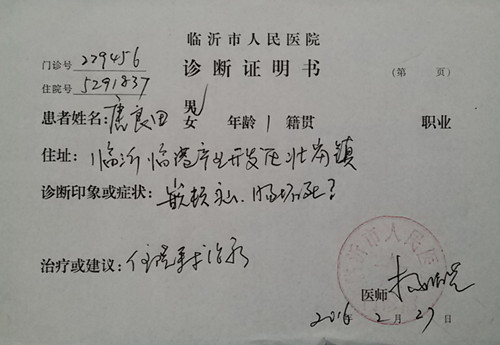 临沂市人民医院
门诊号 229456
诊断证明书
(第 页)
住院号 5291837
患者姓名: 良田 男 女 年龄 1 籍贯 职业
住址: 临沂临港产业开发区壮岗镇
诊断印象或症状: 嵌顿疝、肠坏死
治疗或建议: 住院手术治疗
临沂市人民医
医师
2016年 2月 27日